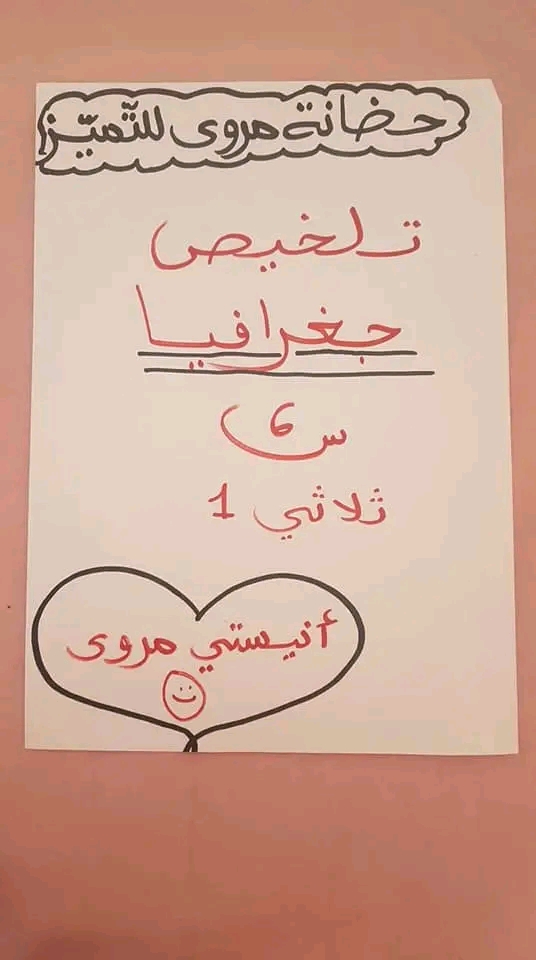 حضانة مروى للتّميّز
تلخيص
جغرافيا
س 6
ثلاثي 1
أنيستي مروى